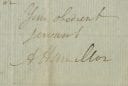 Your obedient
servant
A Hamilton